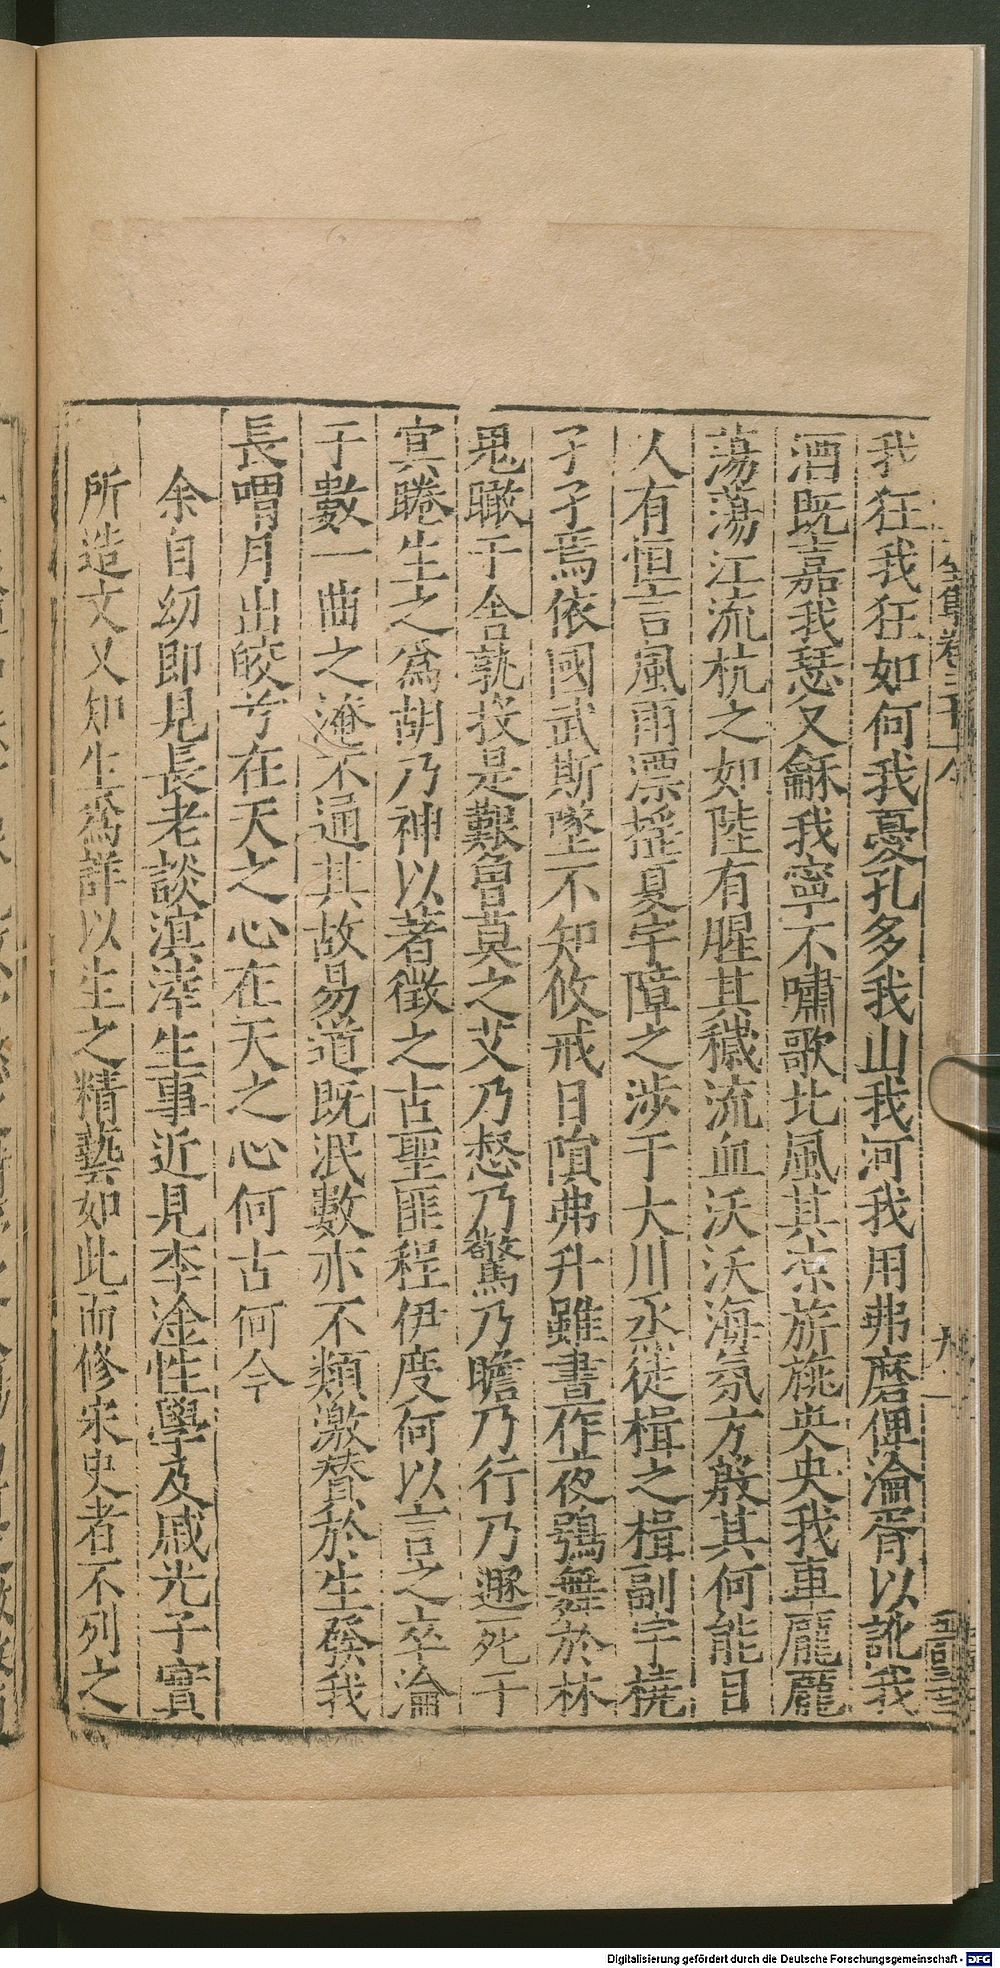 我狂我狂如何我憂孔多我山我河我用弗磨俚淪胥以訛我
酒既嘉我瑟又龢我寧不嘯歌北風其凉旂旐央央我車龐龐
蕩蕩江流杭之如陸有腥其穢流血沃沃海氛方殷其何能目
人有恒言風雨漂搖夏宇障之涉于大川烝徒楫之楫副宇橈
孑孑焉依國武斯墜不知攸戒日隕弗升雖晝作夜鴞舞於林
鬼瞰于舍孰投是艱曾莫之艾乃愁乃驚乃瞻乃行乃遯死于
寘睠生之爲胡乃神以著徵之古聖匪程伊度何以言之卒淪
于數一曲之淹不通其故易道既泯數亦不類激替於生發我
長喟月出皎兮在天之心在天之心何古何今
余自幼即見長老談溟涬生事近見李淦性學及戚光子實
所造文又知生爲詳以生之精藝如此而修宋史者不列之
全集卷三十八
Digitalisierung gefördert durch die Deutsche Forschungsgemeinschaft - DFG